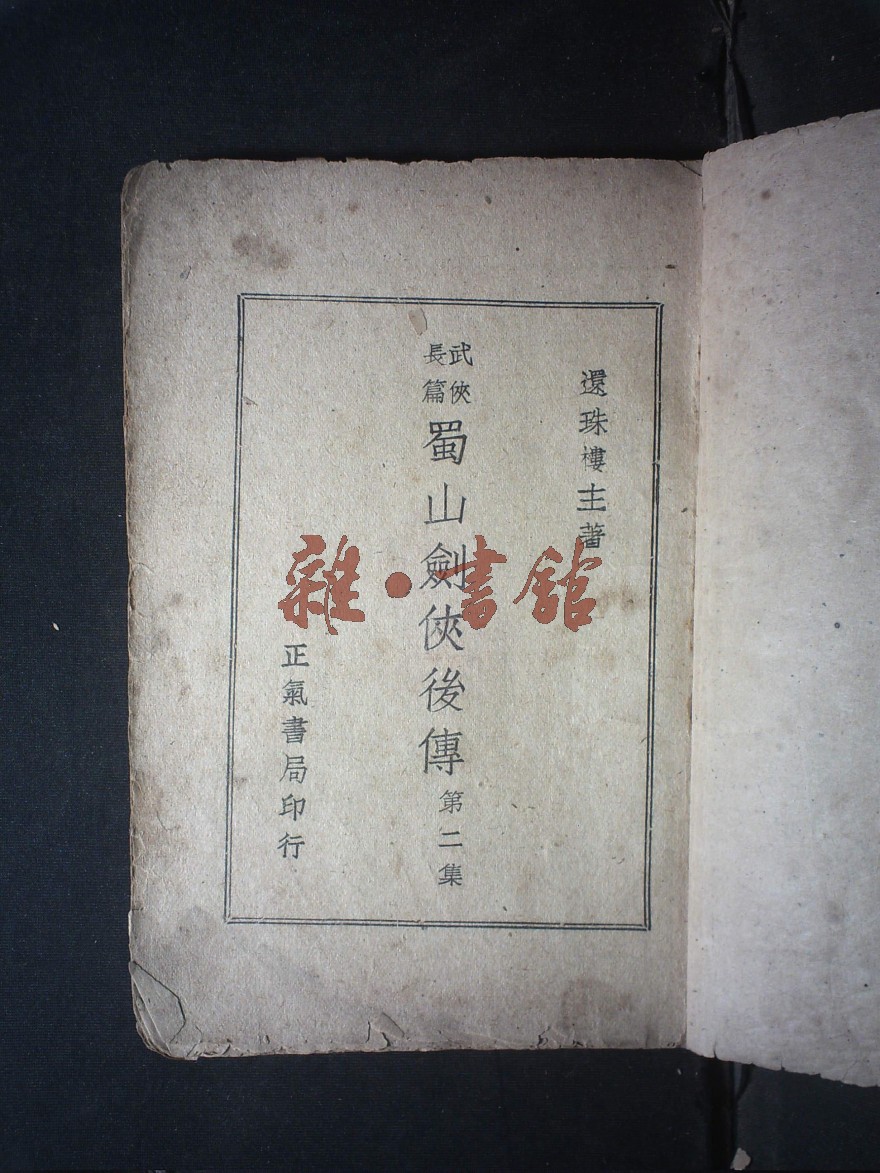 還珠樓主著
武俠
長篇
蜀山劍俠後傳
第二集
正氣書局印行
雜·書館